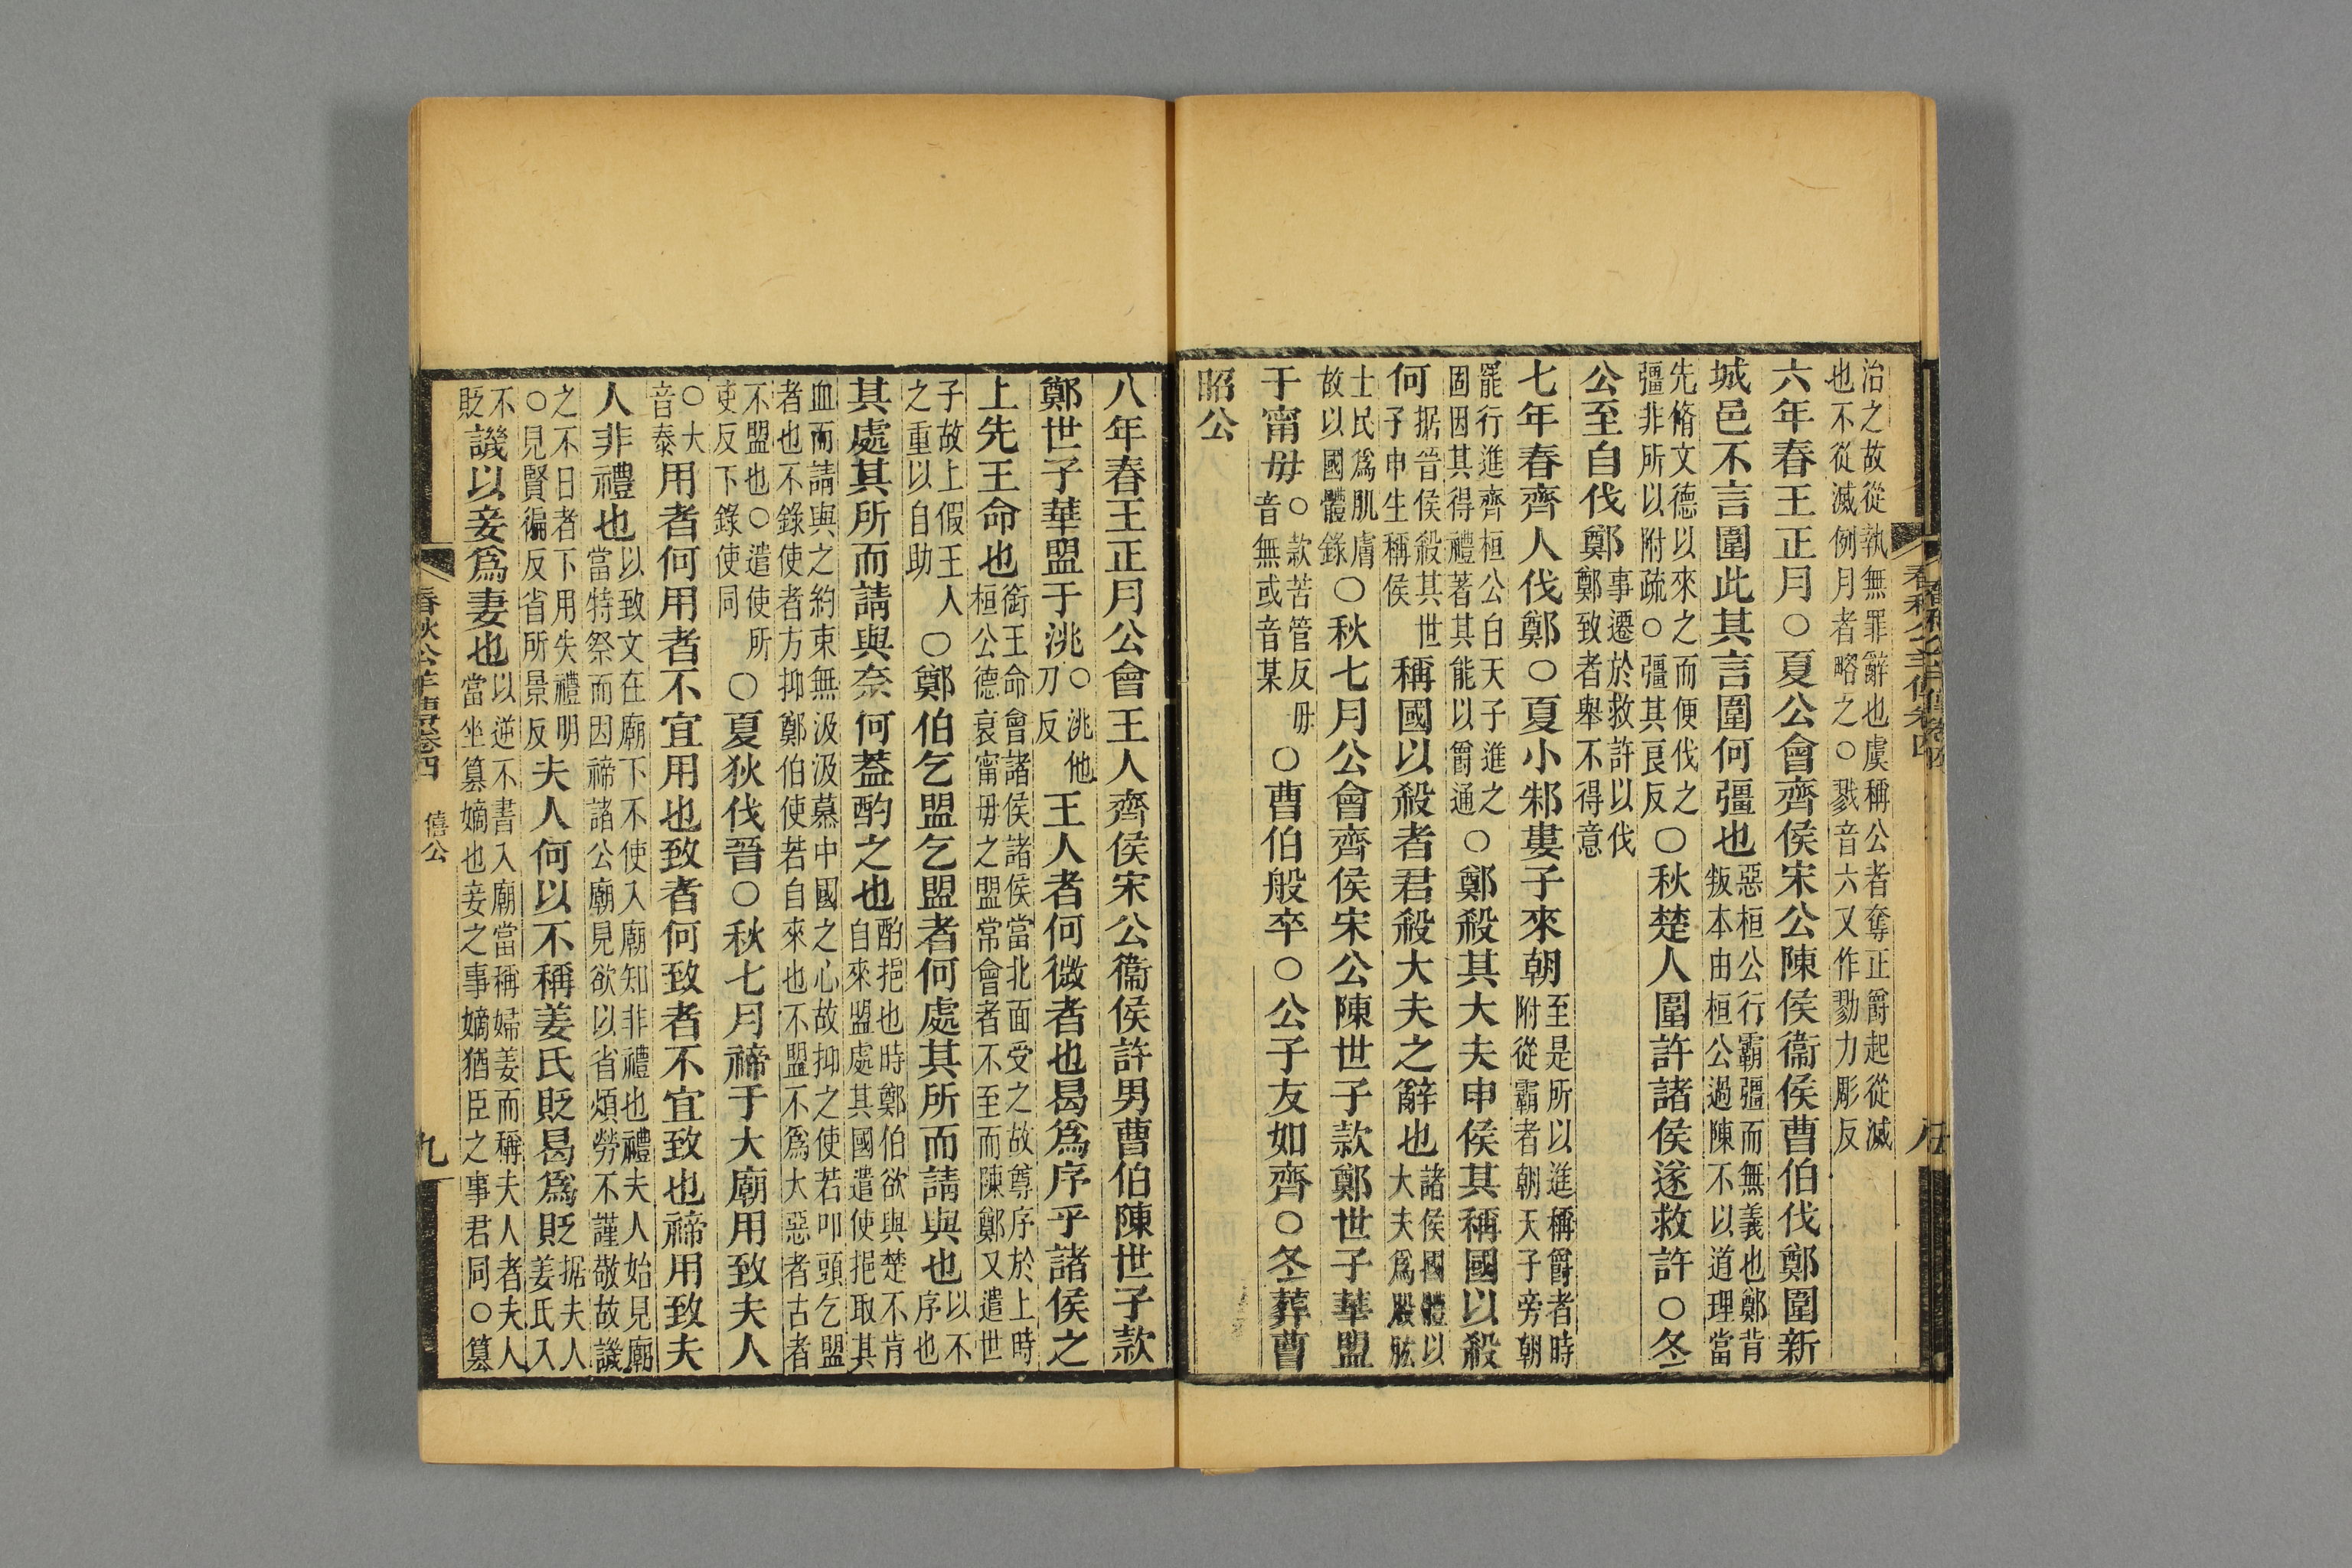 治之故從執無罪辭也虞稱公者奪正爵起從滅
也不從滅例月者略之○戮音六又作勠力彫反
六年春王正月○夏公會齊侯宋公陳侯衞侯曹伯伐鄭圍新
城邑不言圍此其言圍何彊也惡桓公行霸彊而無義也鄭背
叛本由桓公過陳不以道理當
先脩文德以來之而便伐之
彊非所以附疏○彊其良反○秋楚人圍許諸侯遂救許○冬
公至自伐鄭事遷於救許以伐
鄭致者舉不得意
七年春齊人伐鄭○夏小邾婁子來朝至是所以進稱爵者時
附從霸者朝天子旁朝
罷行進齊桓公白天子進之
固因其得禮著其能以爵通○鄭殺其大夫申侯其稱國以殺
何据晉侯殺其世
子申生稱侯稱國以殺者君殺大夫之辭也諸侯國體以
大夫爲股肱
士民爲肌膚
故以國體錄○秋七月公會齊侯宋公陳世子款鄭世子華盟
于甯毋○款苦管反毋
音無或音某○曹伯般卒○公子友如齊○冬葬曹
昭公
八年春王正月公會王人齊侯宋公衞侯許男曹伯陳世子款
鄭世子華盟于洮○洮他
刀反王人者何微者也曷爲序乎諸侯之
上先王命也銜王命會諸侯諸侯當北面受之故尊序於上時
桓公德衰甯毋之盟常會者不至而陳鄭又遣世
子故上假王人
之重以自助○鄭伯乞盟乞盟者何處其所而請與也以不
序也
其處其所而請與奈何蓋酌之也酌挹也時鄭伯欲與楚不肯
自來盟處其國遣使挹取其
血而請與之約束無汲汲慕中國之心故抑之使若叩頭乞盟
者也不錄使者方抑鄭伯使若自來也不盟不爲大惡者古者
不盟也○遣使所
吏反下錄使同○夏狄伐晉○秋七月禘于大廟用致夫人
○大
音泰用者何用者不宜用也致者何致者不宜致也禘用致夫
人非禮也以致文在廟下不使入廟知非禮也禮夫人始見廟
當特祭而因禘諸公廟見欲以省煩勞不謹敬故譏
之不日者下用失禮明
○見賢徧反省所景反夫人何以不稱姜氏貶曷爲貶据夫人
姜氏入
不
貶譏以妾爲妻也以逆不書入廟當稱婦姜而稱夫人者夫人
當坐篡嫡也妾之事嫡猶臣之事君同○篡
春秋公羊傳卷四
僖公
九